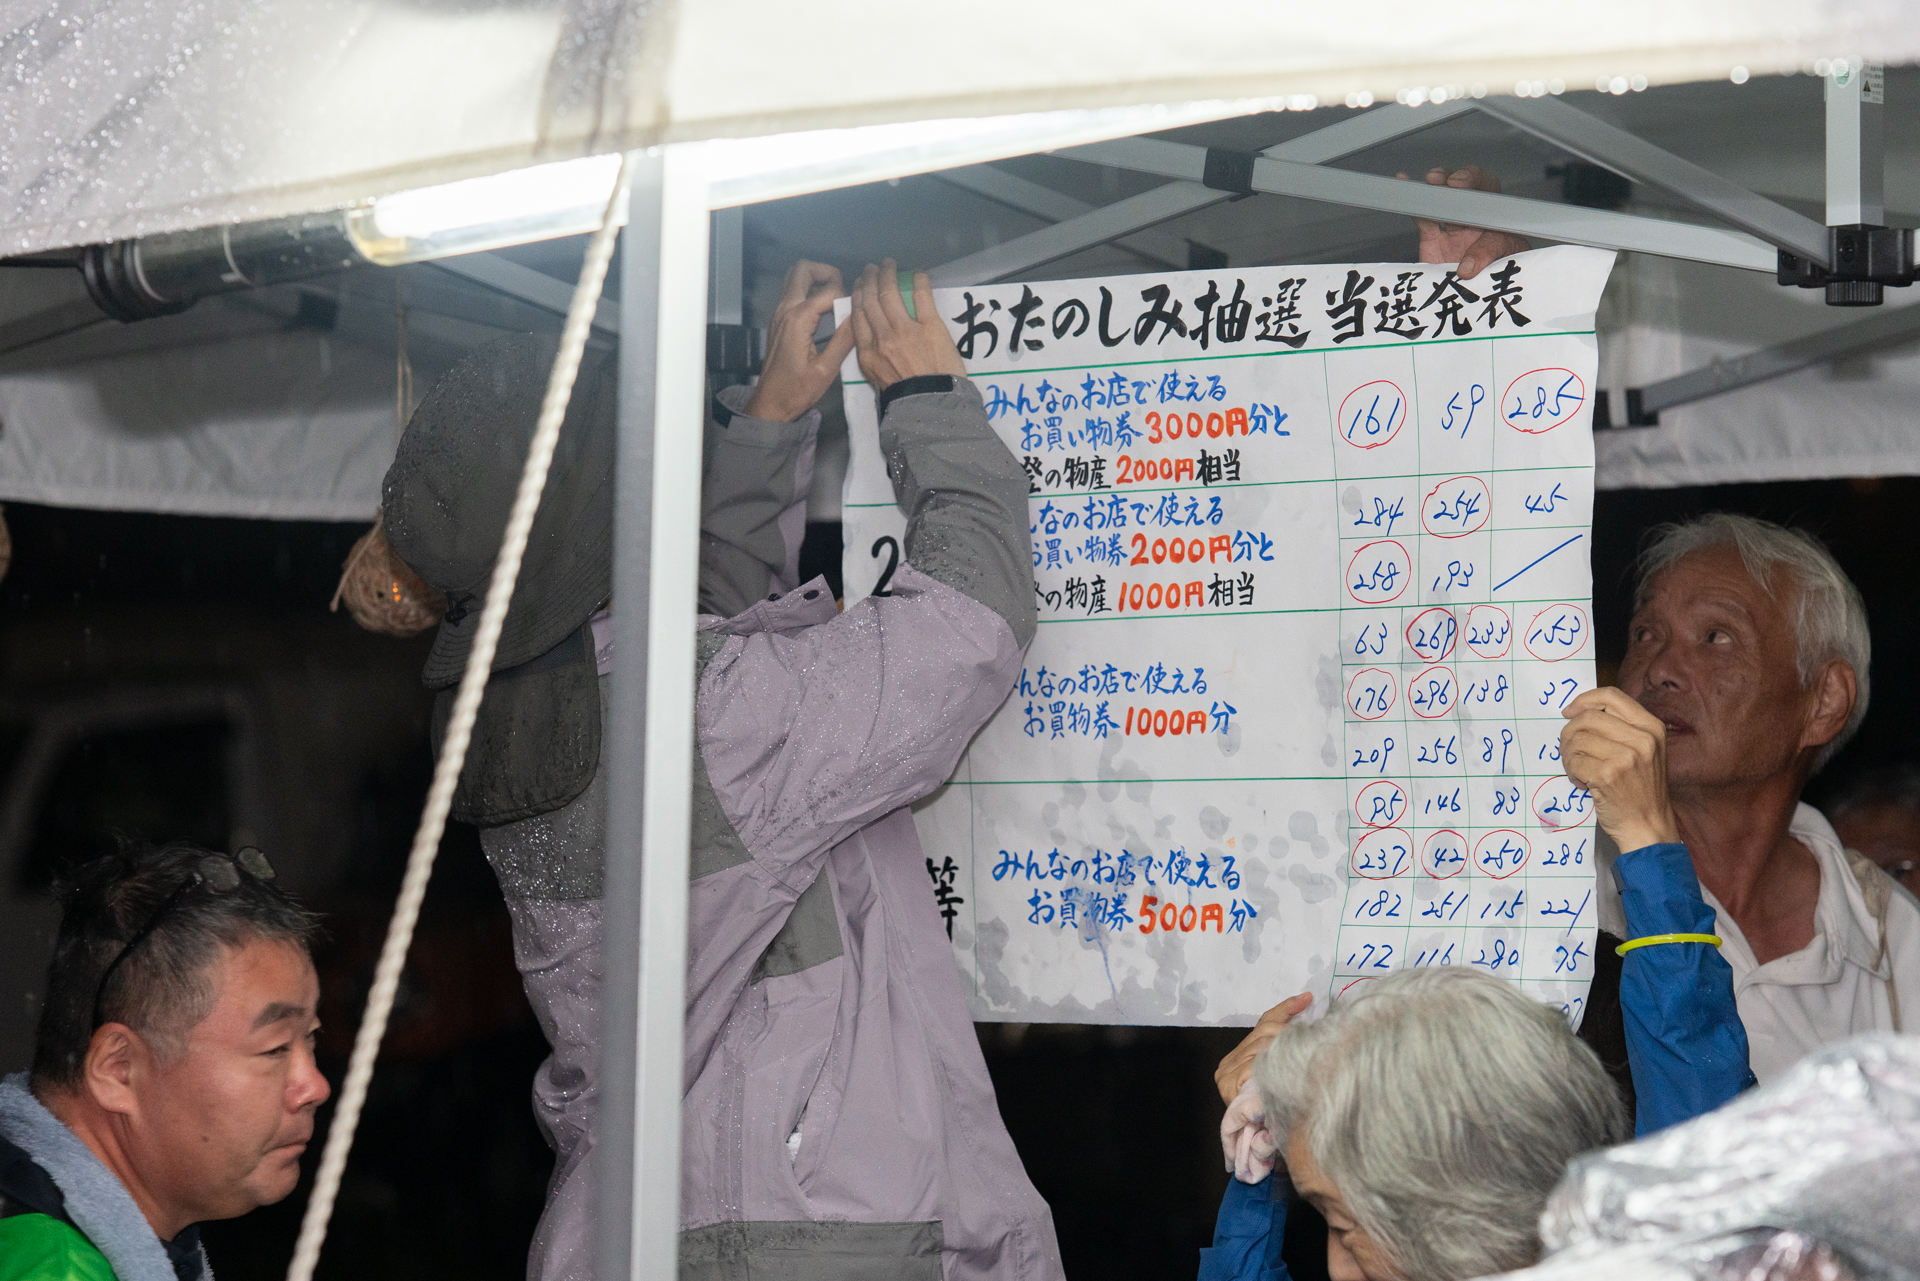 おたのしみ抽選 当選発表
みんなのお店で使える
お買い物券 3000円分と
登の物産 2000円相当
161 59 285
2
んなのお店で使える
お買い物券 2000円分と
の物産 1000円相当
284 254 45
258 193
んなのお店で使える
お買物券 1000円分
63 269 233 153
176 296 138 37
209 256 89 13
95 146 83 255
等
みんなのお店で使える
お買物券 500円分
237 42 250 286
182 251 115 221
172 116 280 75